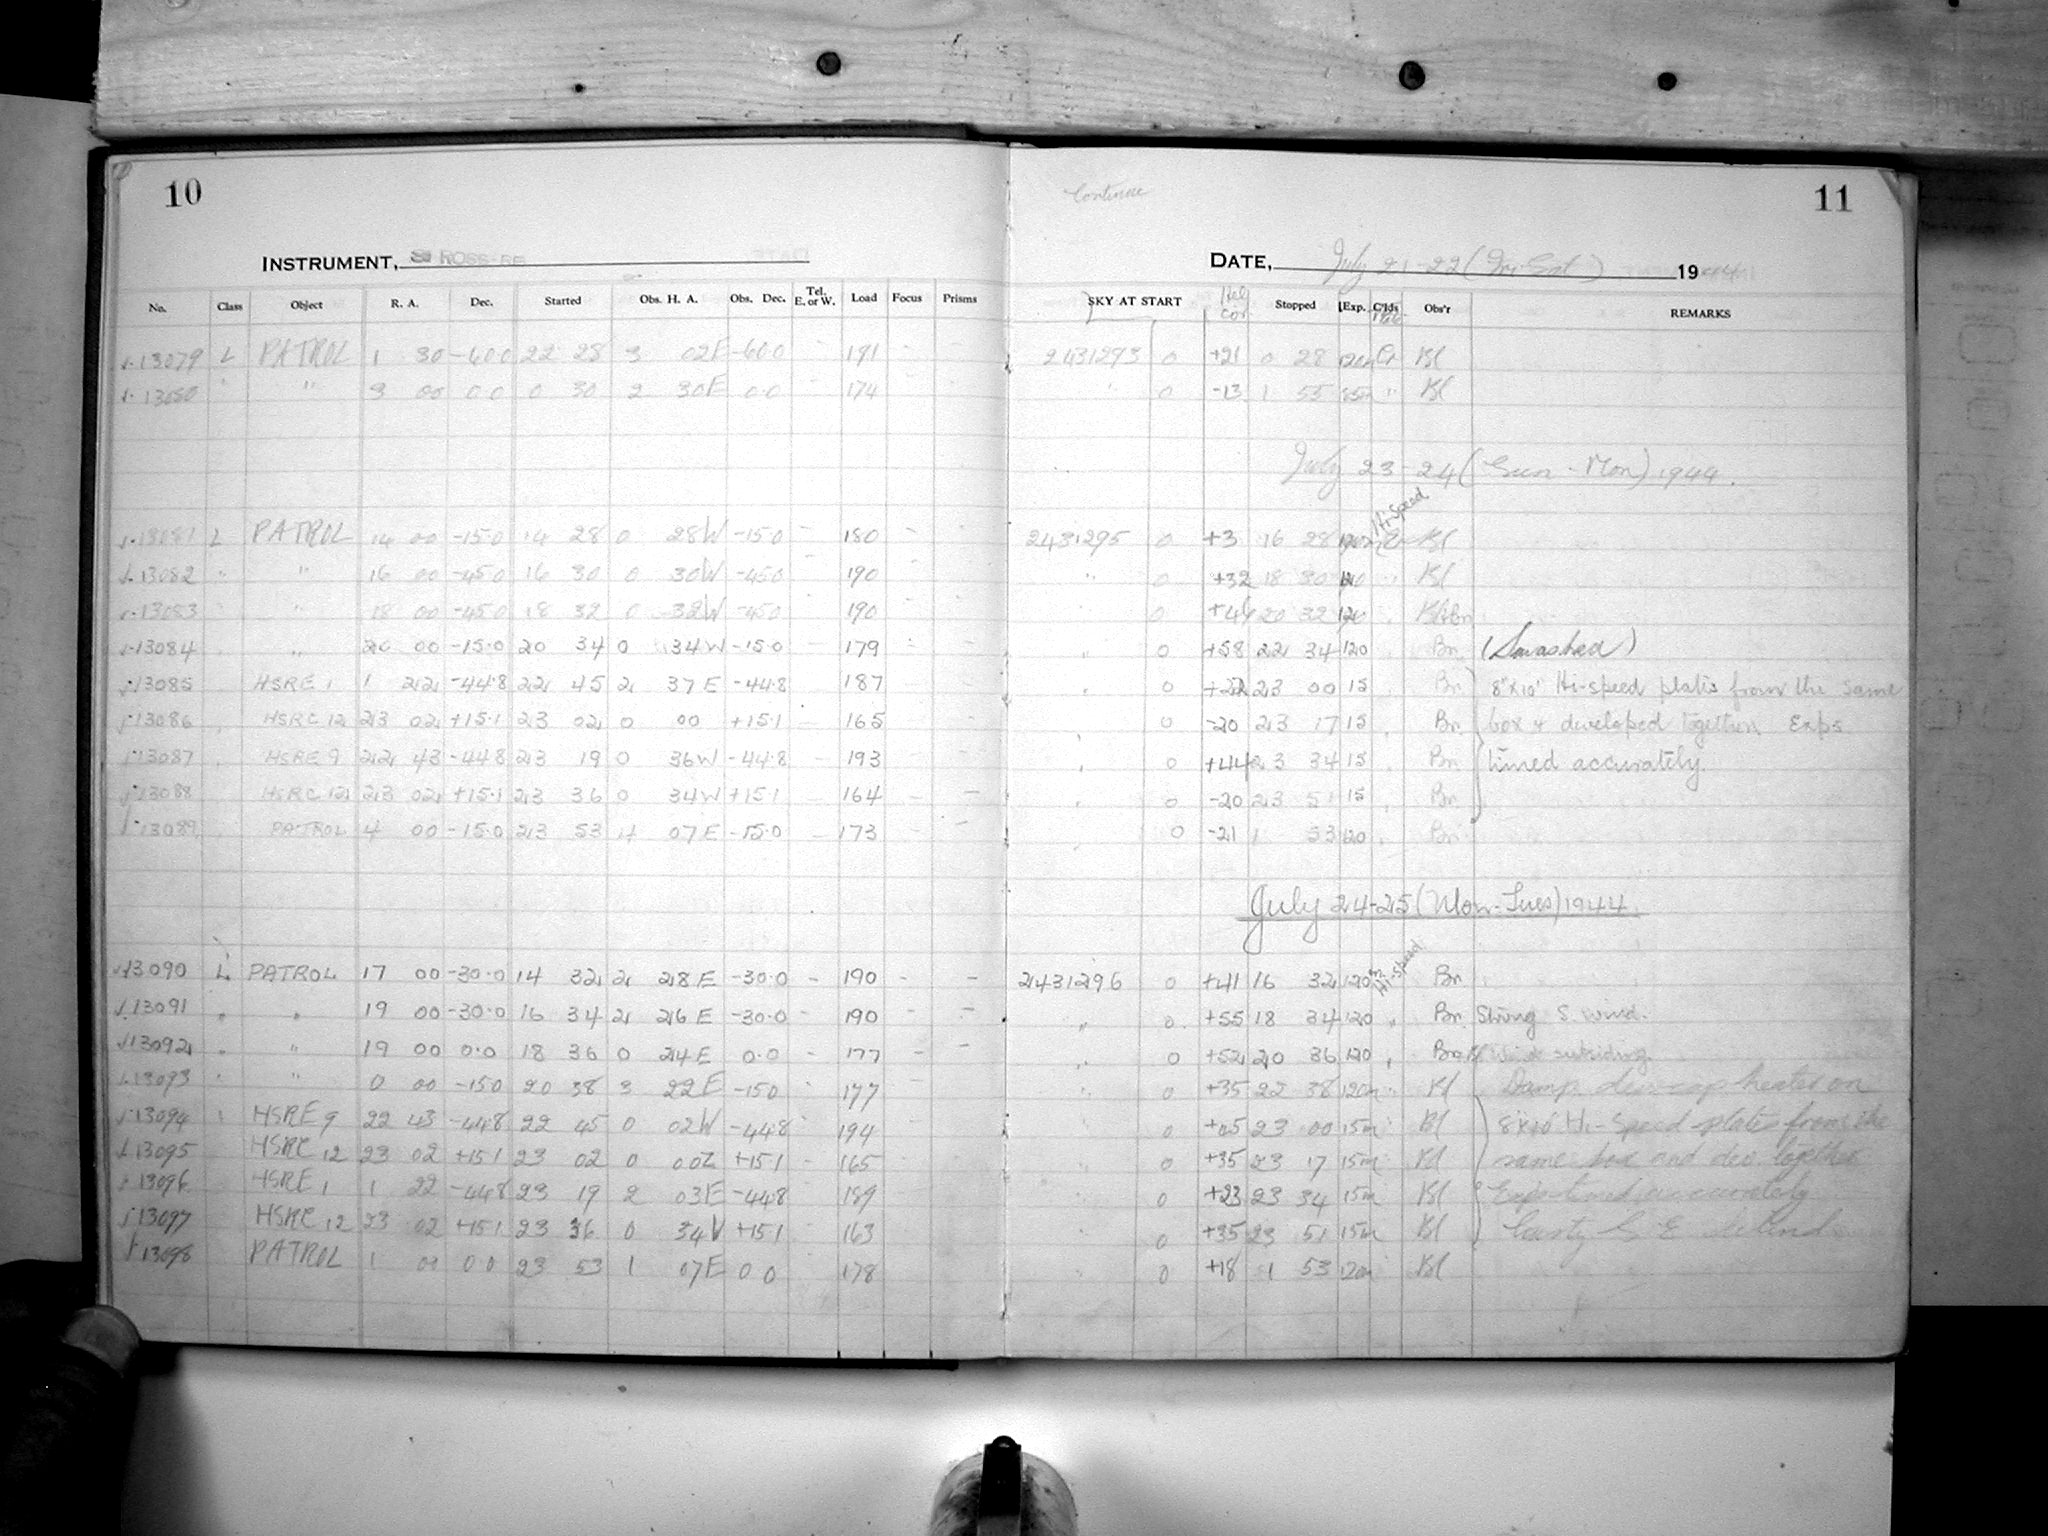 10
Continue
11
INSTRUMENT, ROSS-FE
DATE, July 21-22 (Fri-Sat) 1944
No. Class Object R. A. Dec. Started Obs. H. A. Obs. Dec. Tel. E. or W. Load Focus Prisms SKY AT START Stopped Exp. C'lds Obs'r REMARKS
13079 L PATROL 1 30 -60.0 22 28 3 02E -60.0 - 191 - - 2431293 0 +21 0 28 120m Cr Bl
13080 " " 3 00 0.0 0 30 2 30E 0.0 - 174 - - " 0 -13 1 55 85m " Bl
July 23-24 (Sun-Mon) 1944.
Hi-Speed
13081 L PATROL 14 00 -15.0 14 28 0 28W -15.0 - 180 - - 2431295 0 +3 16 28 120m Bl
13082 " " 16 00 -45.0 16 30 0 30W -45.0 - 190 - - " 0 +32 18 30 120 Bl
13083 " 18 00 -45.0 18 32 0 32W -45.0 190 - - " 0 20 32 120
13084 " 20 00 -15.0 20 34 0 34W -15.0 - 179 - - " 0 +58 22 34 120 " Bn (Smashed)
13085 HSRE 1 1 22 -44.8 22 45 2 37E -44.8 187 - - " 0 23 00 15 Bn 8"x10" Hi-speed plates from the same
13086 " HSRC 12 23 02 +15.1 23 02 0 00 +15.1 - 165 - - 0 -20 23 17 15 Bn box & developed together. Exps
13087 " HSRE 9 22 43 -44.8 23 19 0 36W -44.8 - 193 - - " 0 +44 23 34 15 " Bn timed accurately.
13088 HSRC 12 23 02 +15.1 23 36 0 34W +15.1 - 164 - - " 0 -20 23 51 15 " Bn
13089 " PATROL 4 00 -15.0 23 53 4 07E -15.0 - 173 - - " 0 -21 1 53 120 " Bn
July 24-25 (Mon-Tues) 1944.
Hi-speed
13090 L PATROL 17 00 -30.0 14 32 2 28E -30.0 - 190 - - 2431296 0 +41 16 32 120 Bn
13091 " " 19 00 -30.0 16 34 2 26E -30.0 - 190 - - " 0 +55 18 34 120 " Bn Strong S. wind.
13092 " " 19 00 0.0 18 36 0 24E 0.0 - 177 - - " 0 +52 20 36 120 " Wind subsiding
13093 " " 0 00 -15.0 20 38 3 22E -15.0 177 - - " 0 +35 22 38 120m " Bl Damp dewcap heater on
13094 HSRE 9 22 43 -44.8 22 45 0 02W -44.8 194 - - " 0 +05 23 00 15m Bl 8x10 Hi-Speed plates from the
13095 HSRC 12 23 02 +15.1 23 02 0 00 +15.1 - 165 - - " 0 +35 23 17 15m Bl same box and dev. together
13096 HSRE 1 1 22 -44.8 23 19 2 03E -44.8 189 - - 0 +23 23 34 15m Bl Exps timed accurately
13097 HSRC 12 23 02 +15.1 23 36 0 34W +15.1 163 - - " 0 +35 23 51 15m Bl Gusty S. E.
13098 PATROL 1 00 0.0 23 53 1 07E 0.0 178 - - " 0 +18 1 53 120m Bl